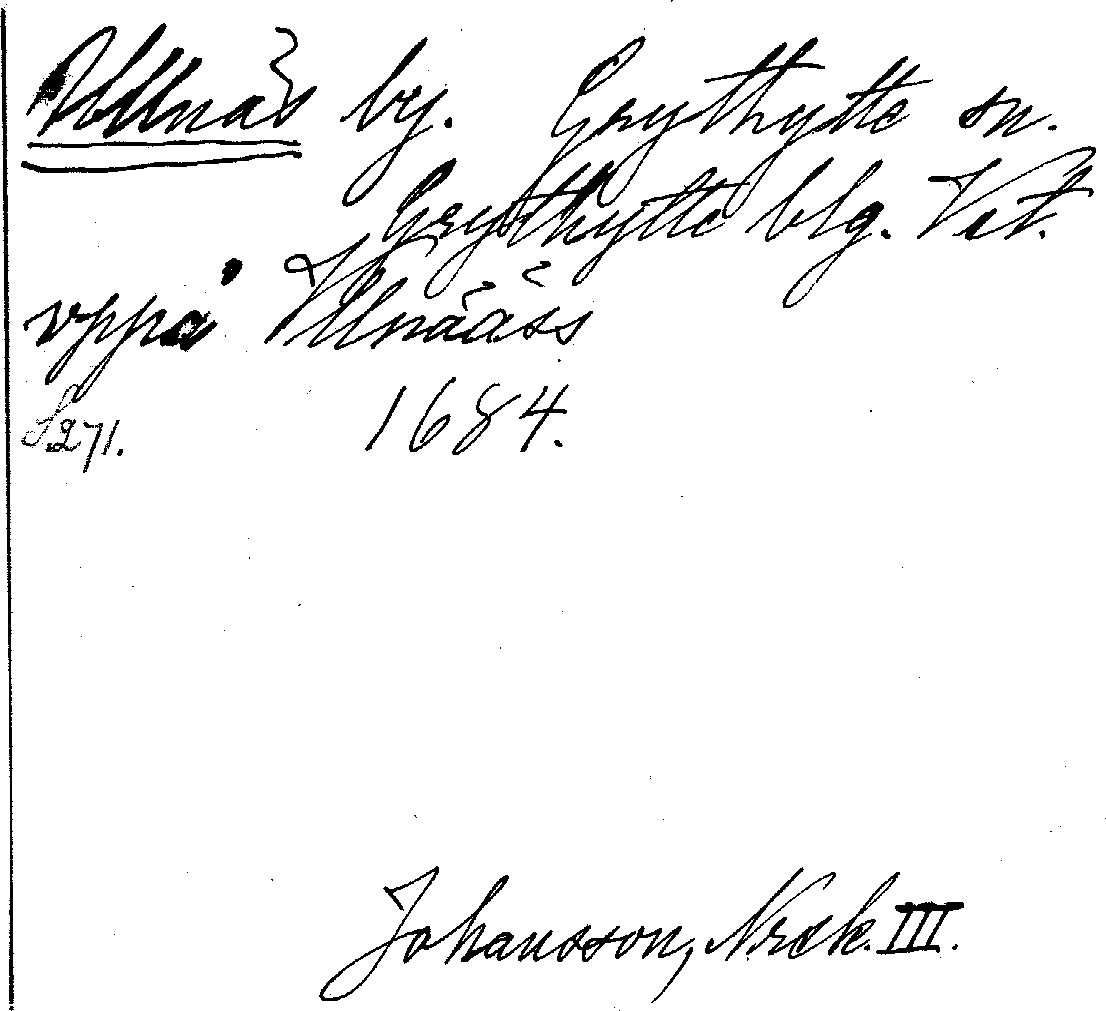 Ullnäs by. Grythytte sn.
Grythytte blg. Vst.
vppå Vllnääss
S. 271. 1684.
Johansson, Noraskog. III.